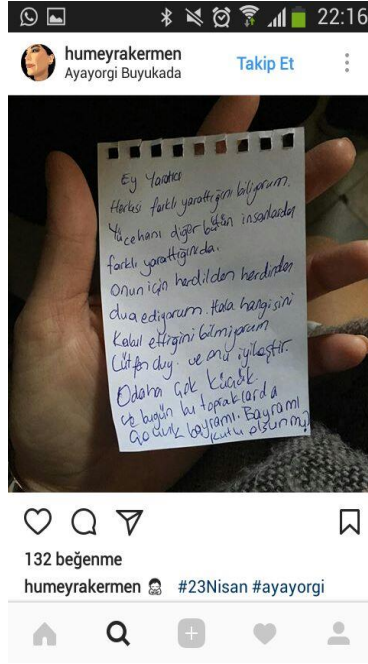 22:16
humeyrakermen
Ayayorgi Buyukada
Takip Et
Ey Yaratıcı
Herkesi farklı yarattığını biliyorum.
Yücehanı diğer bütün insanlardan
farklı yarattığında.
Onun için herdilden herdinden
dua ediyorum. Hala hangisini
Kabul ettiğini bilmiyorum
Lütfen duy. ve onu iyileştir.
Odaha çok küçük.
ve bugün bu topraklarda
Çocuk bayramı. Bayramı
kutlu olsun mu?
132 beğenme
humeyrakermen #23Nisan #ayayorgi